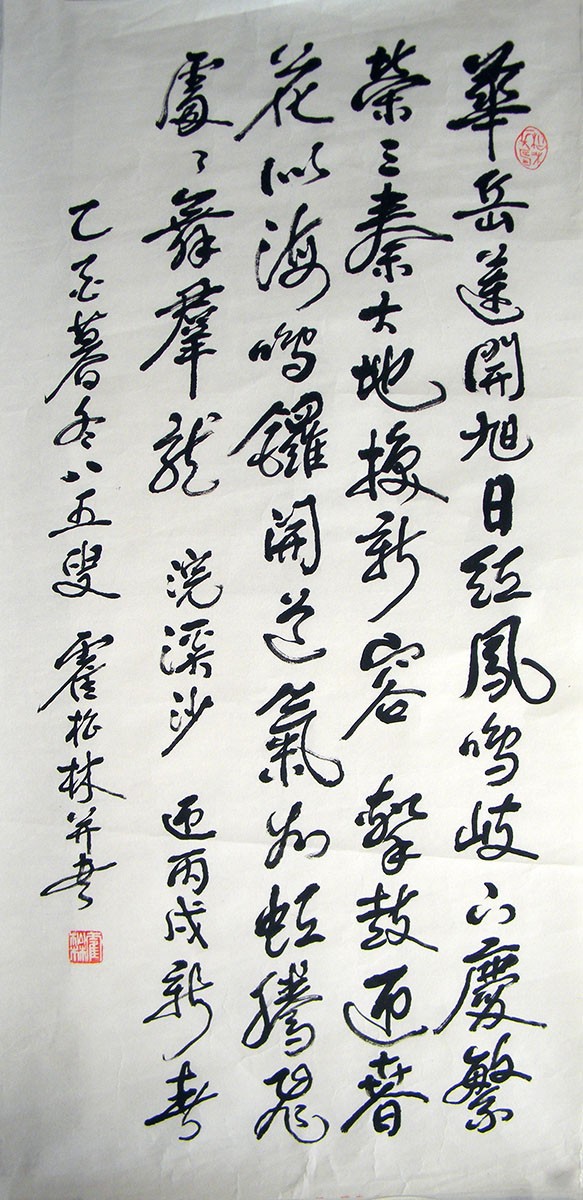 華岳蓮開旭日紅鳳鳴岐山慶繁
榮三秦大地換新容 擊鼓迎春
花似海鳴鑼開道氣如虹騰飛
處〻舞羣龍 浣溪沙 迎丙戌新春
乙酉暮冬八五叟 霍松林并書
霍松林